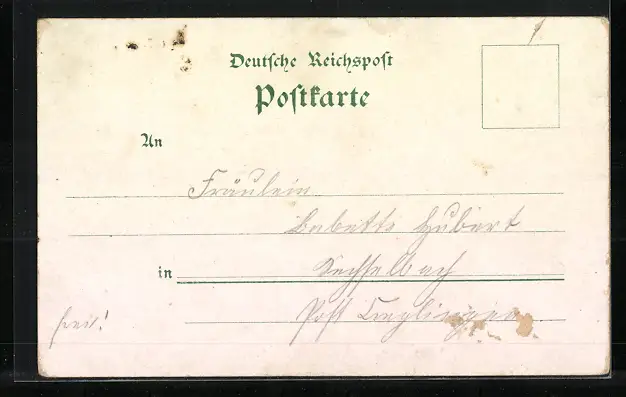 Deutsche Reichspost
Postkarte
An
Fräulein
Babette Hubert
in Sechselbach
Post Creglingen
frei!